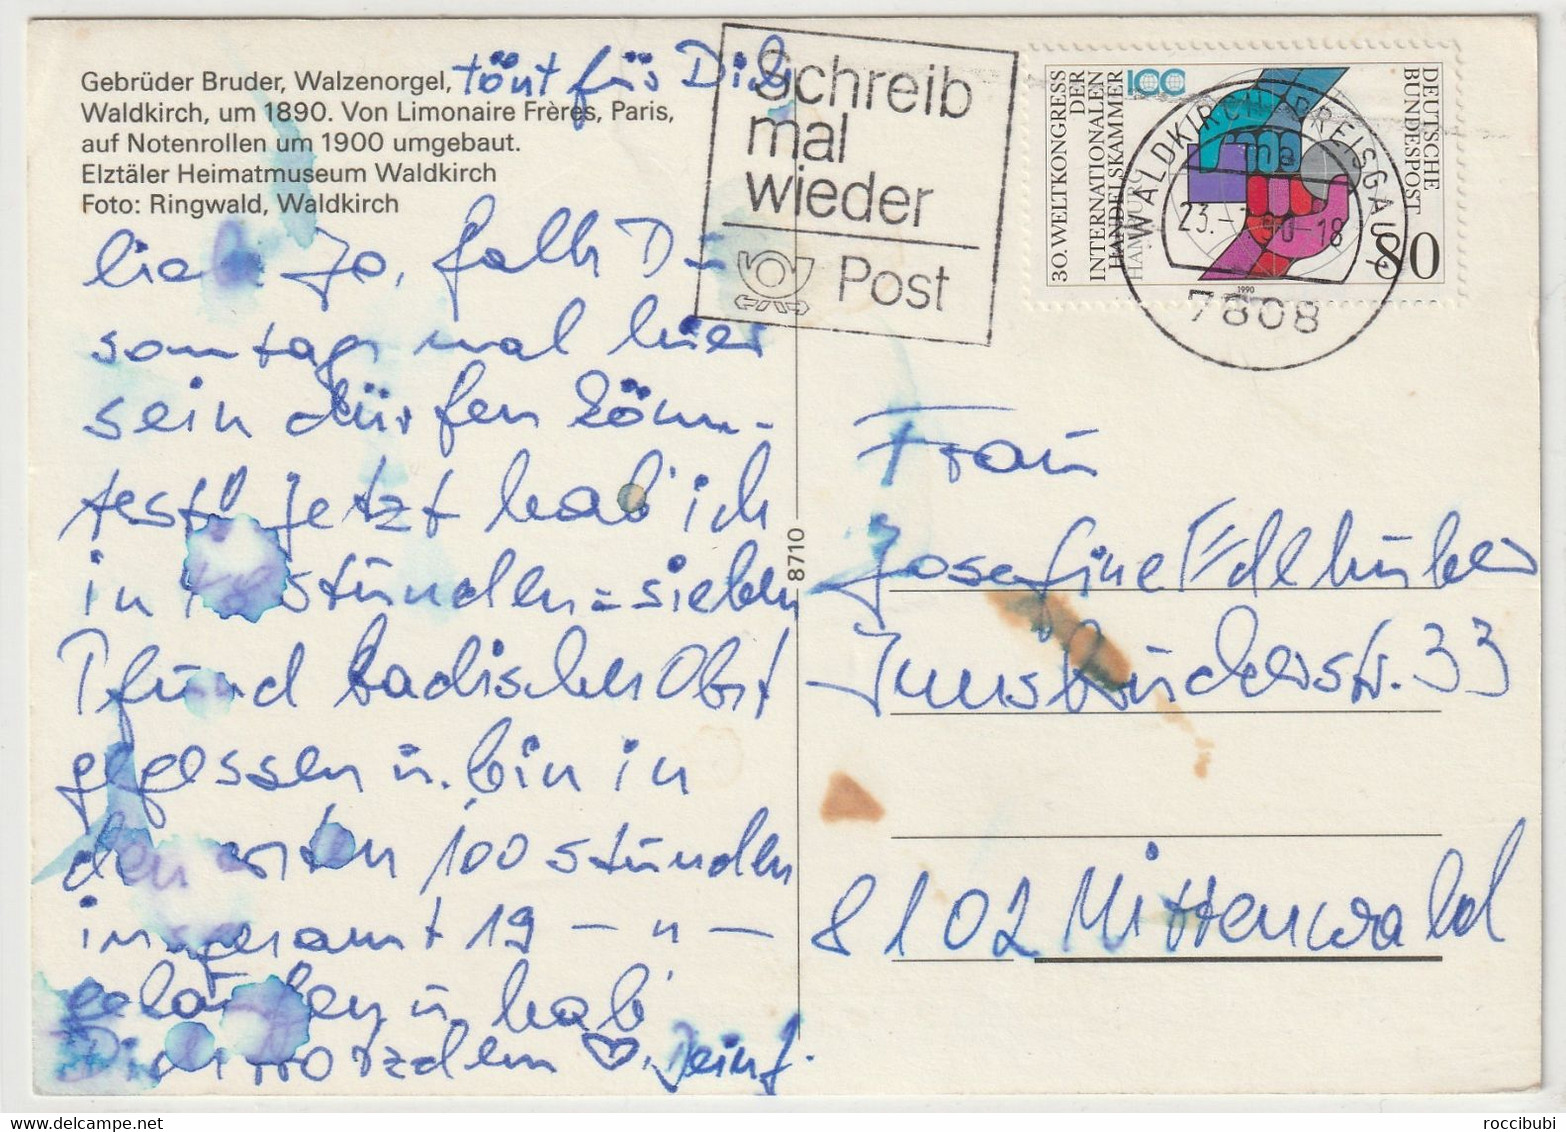 Gebrüder Bruder, Walzenorgel, tönt für Dich
Waldkirch, um 1890. Von Limonaire Frères, Paris,
auf Notenrollen um 1900 umgebaut.
Elztäler Heimatmuseum Waldkirch
Foto: Ringwald, Waldkirch
Schreib
mal
wieder
Post
30. WELTKONGRESS
DER
INTERNATIONALEN
HANDELSKAMMER
HAMBURG
100
DEUTSCHE
BUNDESPOST
80
1990
WALDKIRCH, BREISGAU 1
ma
23.-7.90-18
7808
liebe Jo, falls Du
sonntags mal hier
sein dürfen könn-
test! Jetzt hab' ich
in 48 stunden = sieben
Pfund badisches Obst
gegessen u. bin in
den ersten 100 stunden
insgesamt 19 — " —
gelaufen u. hab'
Dich trotzdem ♡. Dein J.
8710
Frau
Josefine Edlhuber
Innsbruckerstr. 33
8102 Mittenwald
roccibubi